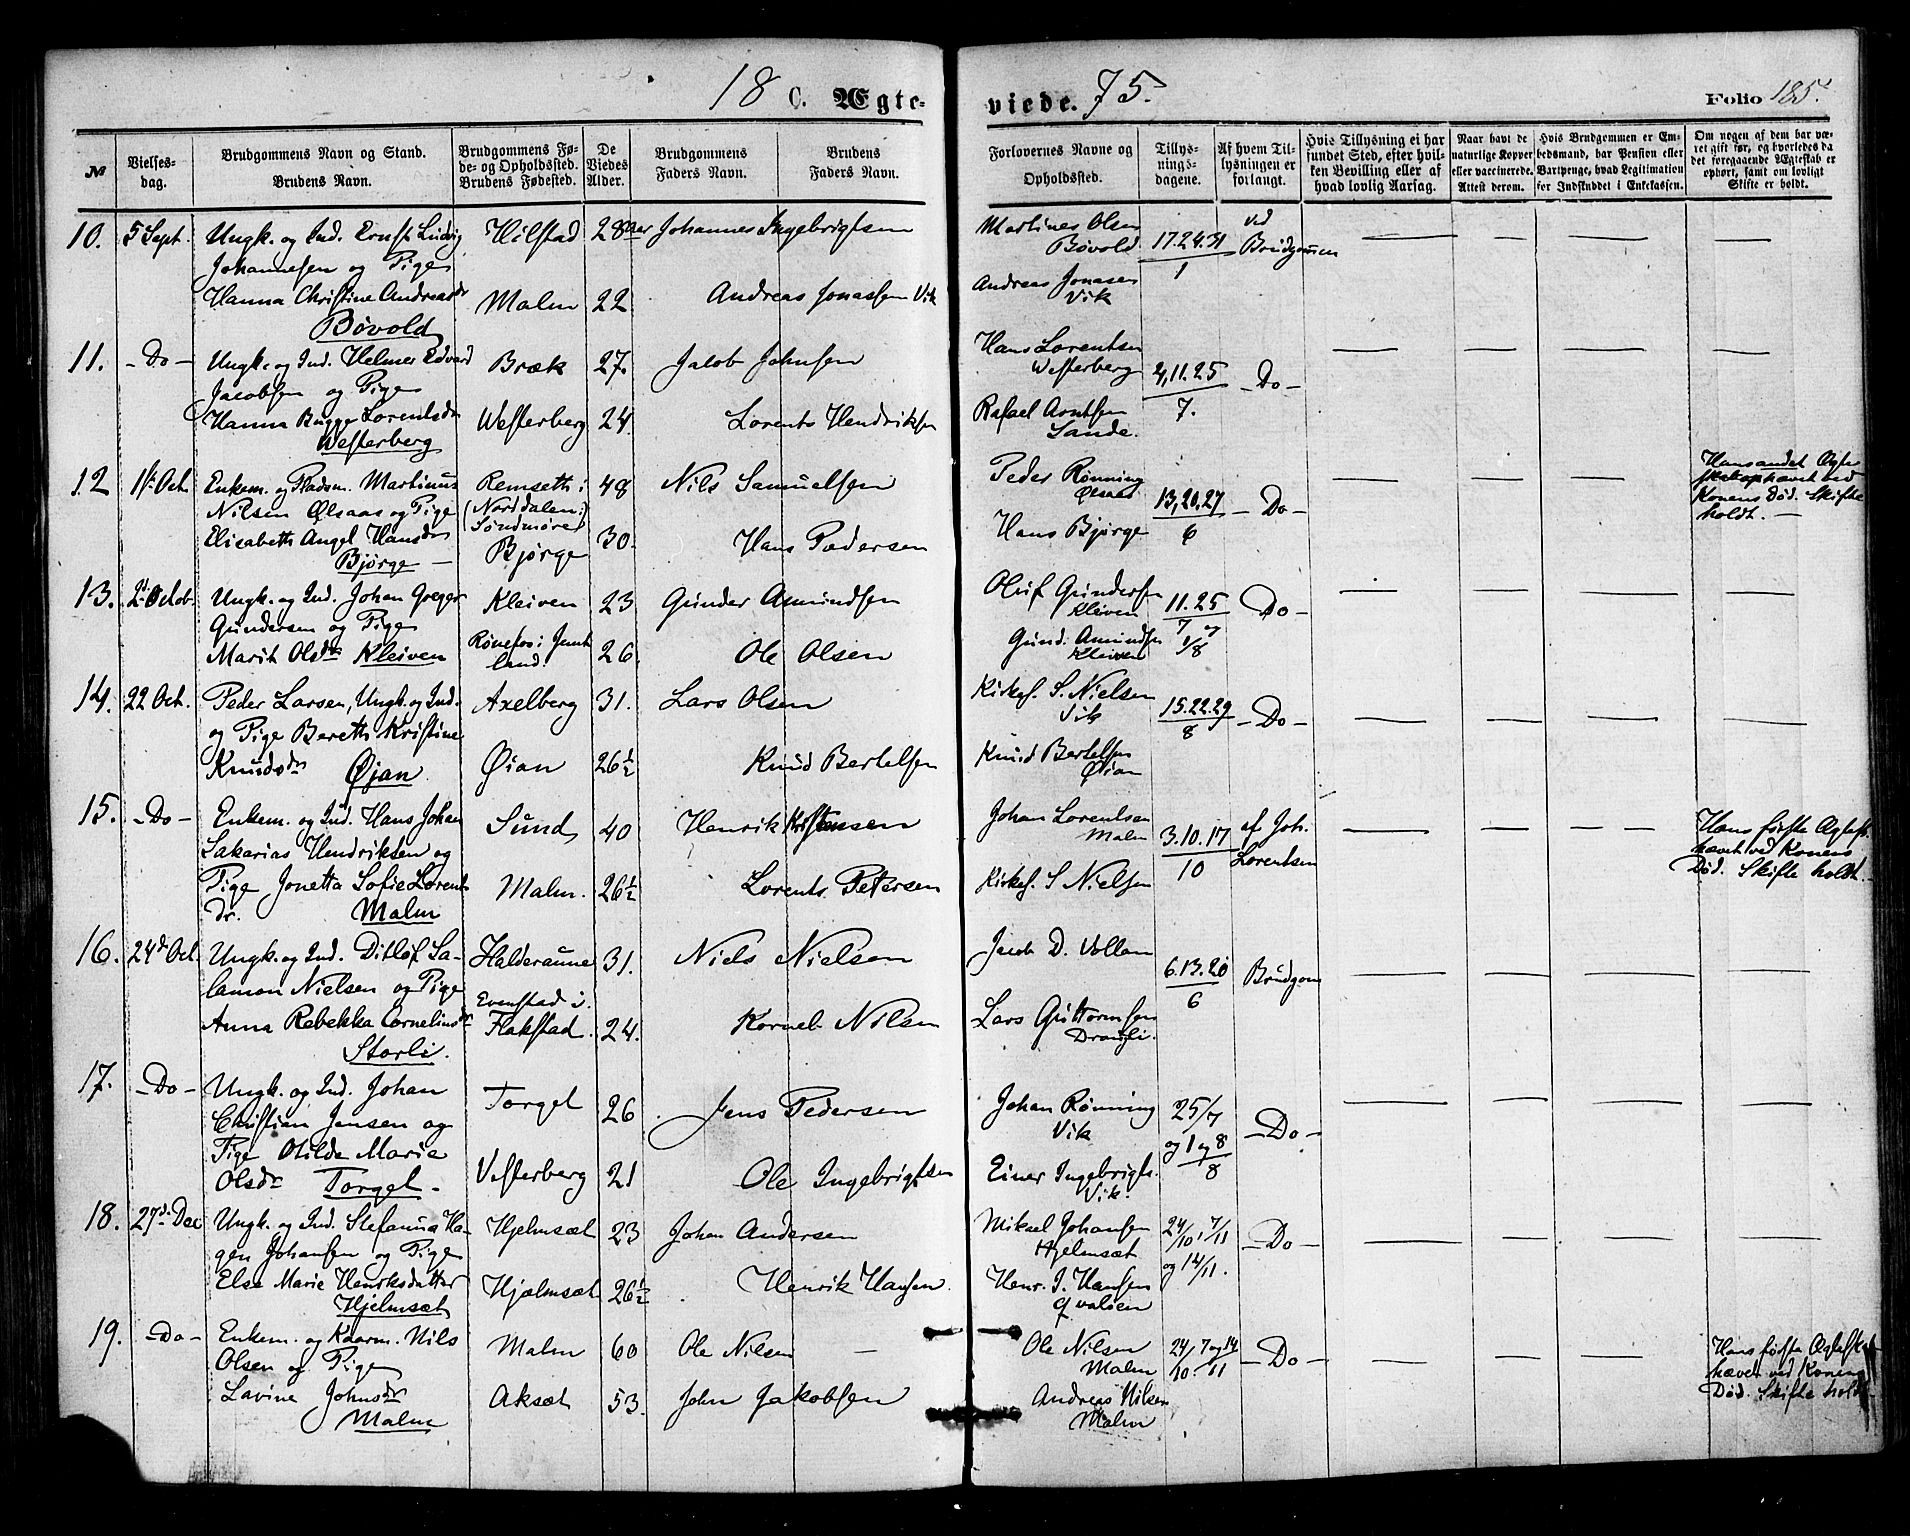 18 C. Ægte-
viede. 75.
Folio 185.
№
Vielses-
dag.
Brudgommens Navn og Stand.
Brudens Navn.
Brudgommens Fø-
de- og Opholdssted.
Brudens Fødested.
De
Viedes
Alder.
Brudgommens
Faders Navn.
Brudens
Faders Navn.
Forlovernes Navne og
Opholdssted.
Tillys-
nings-
dagene.
Af hvem Til-
lysningen er
forlangt.
Hvis Tillysning ei har
fundet Sted, efter hvil-
ken Bevilling eller af
hvad lovlig Aarsag.
Naar havt de
naturlige Kopper
eller vaccinerede.
Attest derom.
Hvis Brudgommen er Em-
bedsmand, har Pension eller
Vartpenge, hvad Legitimation
for Indskuddet i Enkekassen.
Om nogen af dem har væ-
ret gift før, og hvorledes da
det foregaaende Ægteskab er
ophørt, samt om lovligt
Skifte er holdt.
10. 5 Sept. Ungk. og Ind. Ernst Ludvig Hilstad 28 aar Johannes Ingebrigtsen Martines Olsen ved
Johannesen og Pige Bøvold 17.24.31 Brudgommen
Hanna Christine Andreasdr Malm 22 Andreas Jonassen Vik Andreas Jonasen 1
Bøvold Vik
11. - Do - Ungk. og Ind. Helmer Edvard Bræk 27. Jacob Johnsen Hans Lorentsen
Jacobsen og Pige Westerberg 4,11.25 - Do -
Hanna Bugge Lorentsdr Westerberg 24. Lorents Hendriksen Rafael Arntsen 7.
Westerberg Sande.
12 1ste Oct. Enkem. og Pladsm. Martinus Remseth i 48 Nils Samuelsen Peder Rønning Hans andet Ægte
Nilsen Ølsaas og Pige (Norddalen: Ølsaas 13,20,27 - Do - skab ophævet ved
Elisabeth Angel Hansdr Søndmøre) Hans Bjørge 6 Konens Død. Skifte
Bjørge - Bjørge 30. Hans Pedersen holdt. -
13. 2d Octob. Ungk. og Ind. Johan Greger Kleiven 23 Gunder Amundsen Oluf Gundersen
Gundersen og Pige Kleiven 11.25 - Do -
Marit Olsdr Kleiven Rønefos i Jemt 26. Ole Olsen Gund. Amundsen 7 og
land. Kleiven 1/8
14. 22 Oct. Peder Larsen, Ungk. og Ind. Axelberg 31. Lars Olsen Kirkes. S. Nielsen
og Pige Bereth Kristine Vik 15.22.29 - Do -
Knudsdr Øjan. Øian 26½ Knud Bertelsen Knud Bertelsen 8
Øian
15. - Do - Enkem. og Ind. Hans Johan Sund 40 Henrik Kristensen Johan Lorentsen af Joh. Hans første Ægtesk.
Sakarias Hendriksen og Malm 3.10.17 Lorentsen hævet ved Konens
Pige Jonetta Sofie Lorents Malm. 26½ Lorents Petersen Kirkes. S Nielsen 10 Død. Skifte holdt. -
dr. Malm
16. 24de Oct. Ungk. og Ind. Ditlef Sa- Halderaune 31. Niels Nielsen Jacob D. Vollan
lamon Nielsen og Pige Evenstad i 6.13.20 Brudgom
Anna Rebekka Cornelinsdr Flakstad. 24. Kornel. Nilsen Lars Guttormsen 6
Storli.
17. - Do - Ungk. og Ind. Johan Torgel 26 Jens Pedersen Johan Rønning 25/7
Christian Jensen og Vik og 1 og 8 - Do -
Pige Otilde Marie Vesterberg 21 Ole Ingebrigtsen Einer Ingebrigts. 8
Olsdr Torgel. Vik.
18. 27d. Dec Ungk. og Ind. Stefanus Ha- Hjelmsæt 23 Johan Andersen Mikael Johansen 24/10. 7/11
gen Johansen og Pige Hjelmsæt og 14/11. - Do -
Else Marie Henriksdatter Hjelmsæt 26½ Henrik Hansen. Henr. J. Hansen
Hjelmsæt
19. - Do - Enkem. og Kaarm. Nils Malm 60 Ole Nilsen - Ole Nilsen 24/10. 7 og 14/11 - Do - Hans første Ægtesk.
Olsen og Pige Malm hævet ved Konens
Lavine Johnsdr Aksæt 53. John Jakobsen Andreas Nilsen Død. Skifte holdt.
Malm Malm